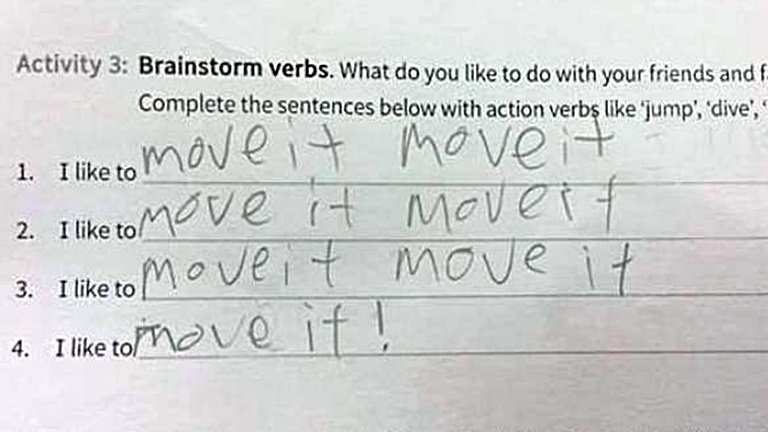 Activity 3: Brainstorm verbs. What do you like to do with your friends and f
Complete the sentences below with action verbs like 'jump', 'dive', '
1. I like to move it move it
2. I like to move it move it
3. I like to move it move it
4. I like to move it!